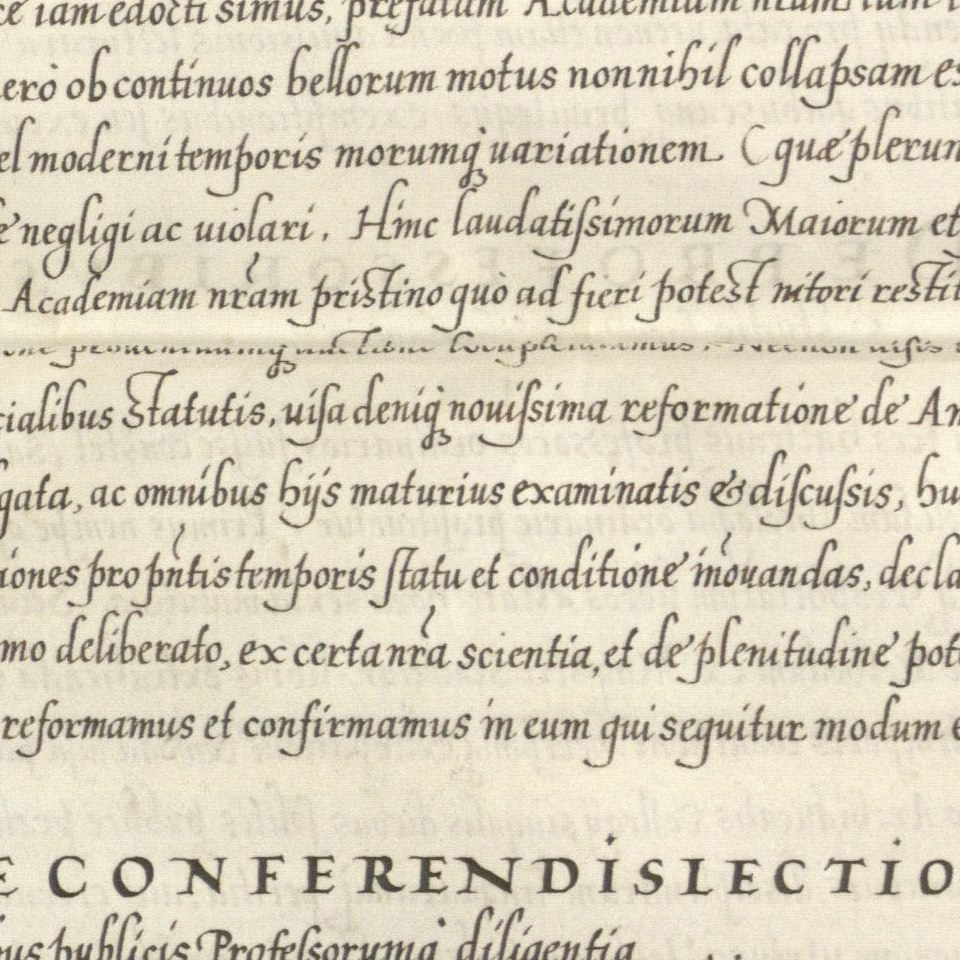 iam edocti simus, prefatam Academiam nram, tum
ero ob continuos bellorum motus nonnihil collapsam es
el moderni temporis morumq́ uariationem. (quæ plerun
negligi ac uiolari. Hinc laudatiſsimorum Maiorum et
Academiam nr̃am pristino quò ad fieri potest nitori restit
cialibus Statutis, uiſa deniq́ nouiſsima reformatione de An
gata, ac omnibus hijs maturius examinatis & diſcuſsis, hu
iones pro pñtis temporis ſtatu et conditione iñouandas, decla
mo deliberato, ex certa nr̃a scientia, et de plenitudine pote
reformamus et confirmamus in eum qui sequitur modum e
E CONFERENDIS LECTIO
bus publicis Profeſsorumq́ diligentia